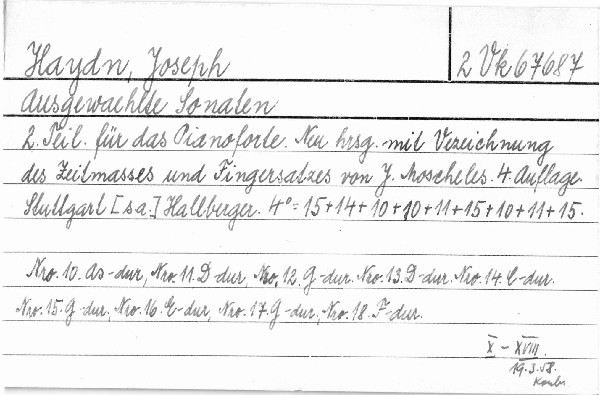 Haydn, Joseph
2 Vk 67687
Ausgewaehlte Sonaten
2. Teil. für das Pianoforte. Neu hrsg. mit Vezeichnung
des Zeitmasses und Fingersatzes von J. Moscheles. 4. Auflage
Stuttgart [s.a.] Hallberger. 4°= 15+14+10+10+11+15+10+11+15.
Nro. 10. As-dur, Nro. 11. D-dur, Nro. 12. G-dur. Nro. 13. D-dur. Nro. 14. C-dur.
Nro. 15. G-dur, Nro. 16. E-dur, Nro. 17. G-dur, Nro. 18. F-dur.
X - XVIII.
19.3.58.